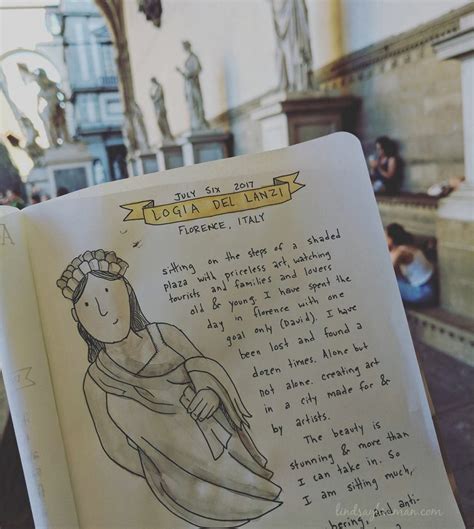 JULY SIX 2017
LOGIA DEL LANZI
FLORENCE, ITALY
sitting on the steps of a shaded
plaza with priceless art, watching
tourists and families and lovers
old & young. I have spent the
day in florence with one
goal only (David). I have
been lost and found a
dozen times. Alone but
not alone. creating art
in a city made for &
by artists.
The beauty is
stunning & more than
I can take in. So
I am sitting much,
and anti-